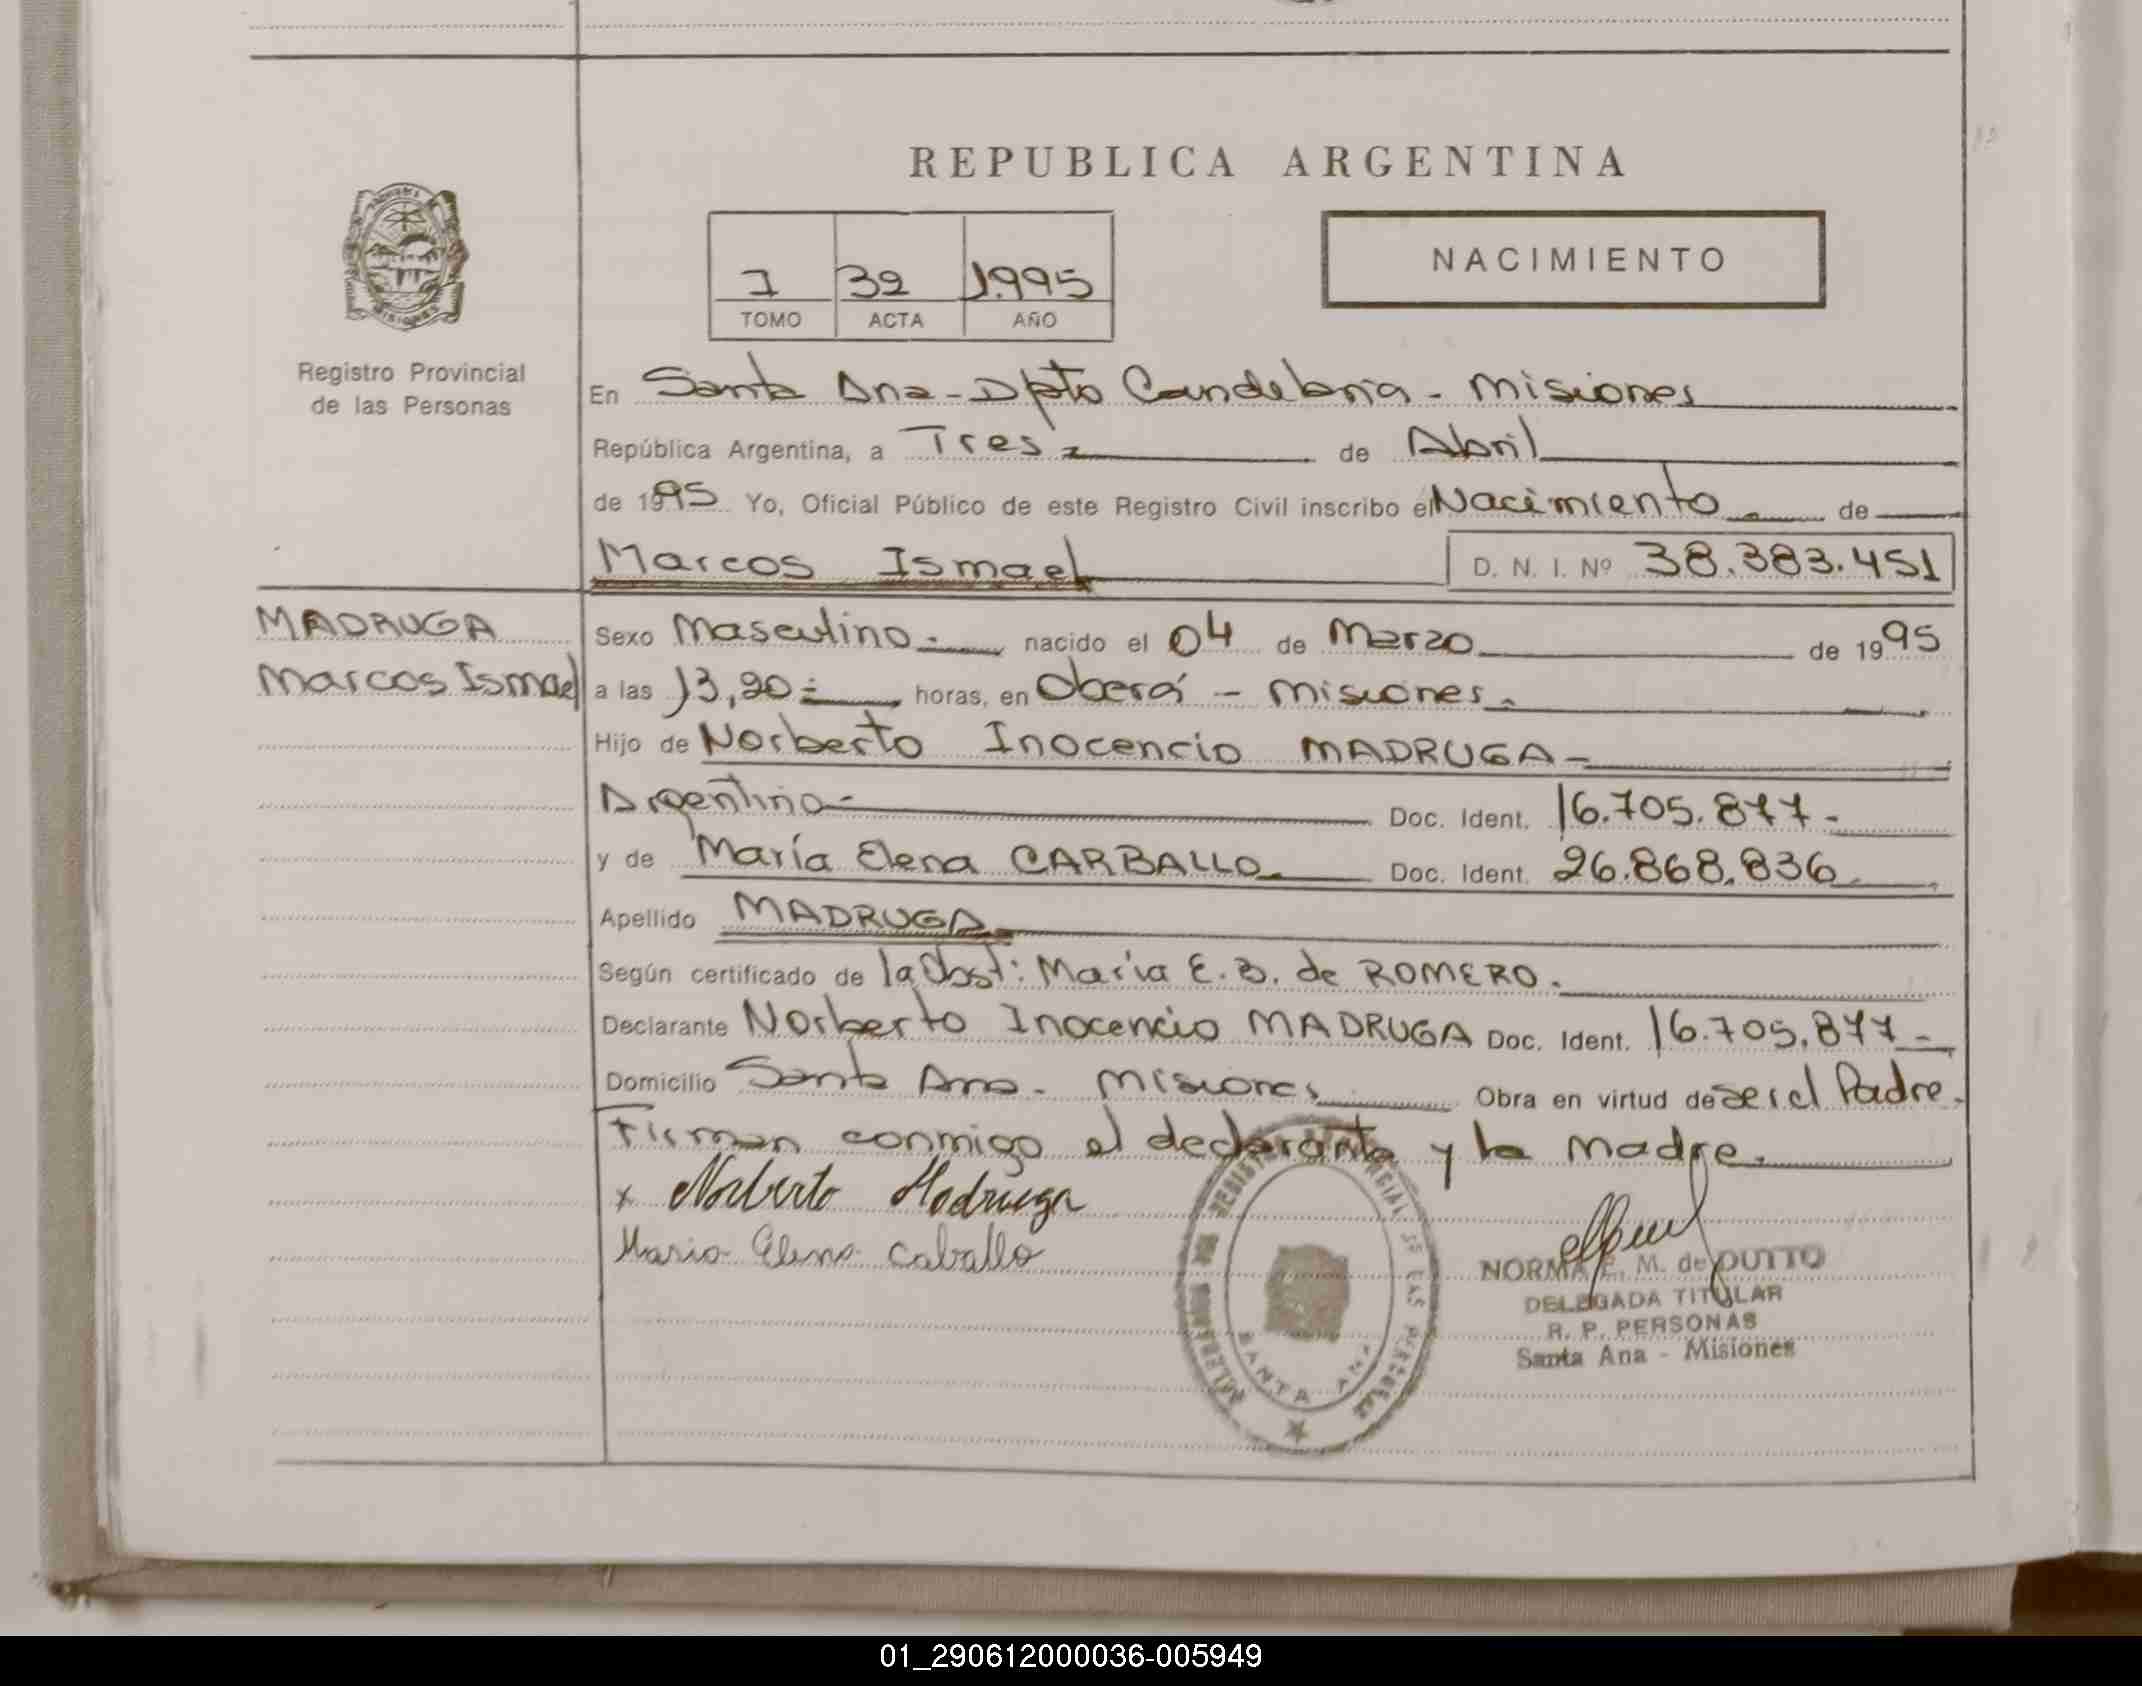 REPUBLICA ARGENTINA
NACIMIENTO
I 32 1.995
TOMO ACTA AÑO
Registro Provincial
de las Personas
En Santa Ana - Dpto Candelaria - Misiones
República Argentina, a Tres de Abril
de 1995 Yo, Oficial Público de este Registro Civil inscribo el Nacimiento de
Marcos Ismael D. N. I. Nº 38.383.451
MADRUGA
Marcos Ismael
Sexo Masculino nacido el 04 de Marzo de 1995
a las 13,20 horas, en Oberá - Misiones.
Hijo de Norberto Inocencio MADRUGA
Argentino Doc. Ident. 16.705.877
y de María Elena CARBALLO Doc. Ident. 26.868.836
Apellido MADRUGA
Según certificado de la Obst: María E. B. de ROMERO.
Declarante Norberto Inocencio MADRUGA Doc. Ident. 16.705.877
Domicilio Santa Ana - Misiones Obra en virtud de ser el Padre.
Firman conmigo el declarante y la madre.
x Norberto Madruga
Maria Elena Caballo
SANTA ANA
NORMA E. M. de DUTTO
DELEGADA TITULAR
R. P. PERSONAS
Santa Ana - Misiones
01_290612000036-005949